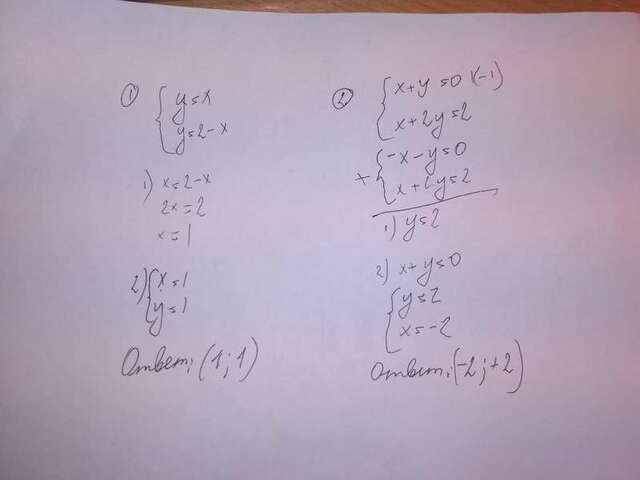 1
y=x
y=2-x
1) x=2-x
2x=2
x=1
2) x=1
y=1
Ответ: (1;1)
2
x+y=0 |(-1)
x+2y=2
-x-y=0
+
x+2y=2
1) y=2
2) x+y=0
y=2
x=-2
Ответ: (-2;+2)